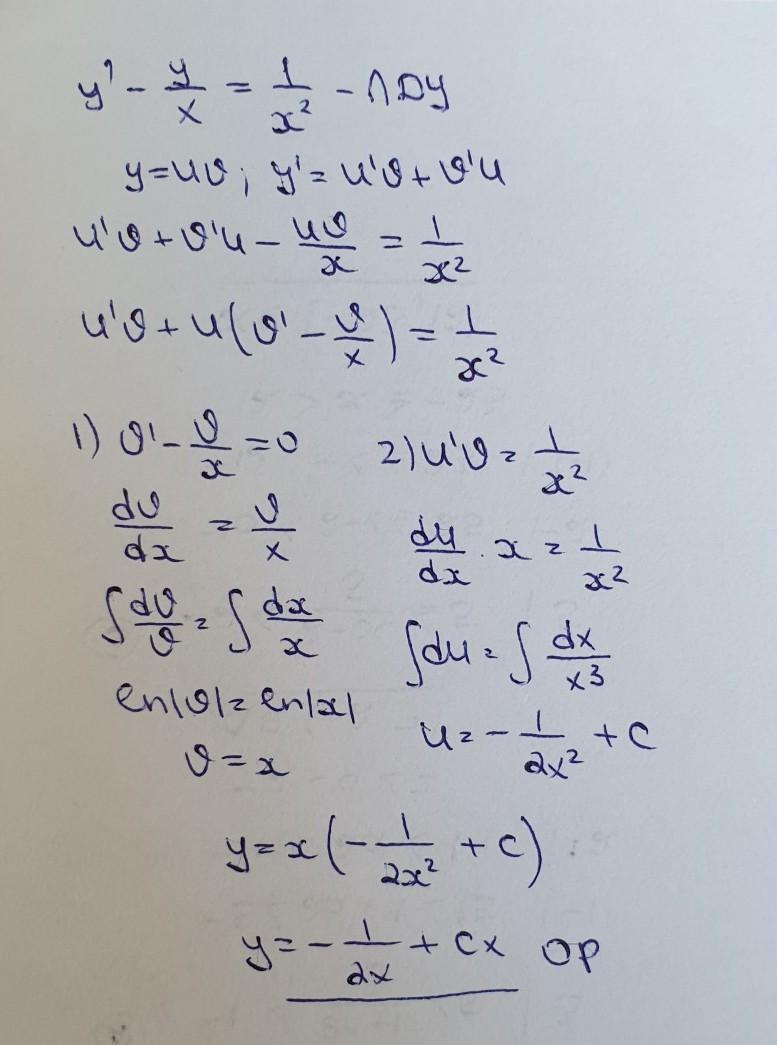 y' - y/x = 1/x² - ЛДУ
y=uϑ; y'= u'ϑ + ϑ'u
u'ϑ + ϑ'u - uϑ/x = 1/x²
u'ϑ + u(ϑ' - ϑ/x) = 1/x²
1) ϑ' - ϑ/x = 0
dϑ/dx = ϑ/x
∫ dϑ/ϑ = ∫ dx/x
ln|ϑ| = ln|x|
ϑ = x
2) u'ϑ = 1/x²
du/dx · x = 1/x²
∫ du = ∫ dx/x³
u = - 1/2x² + C
y = x(- 1/2x² + C)
y = - 1/2x + Cx ОР